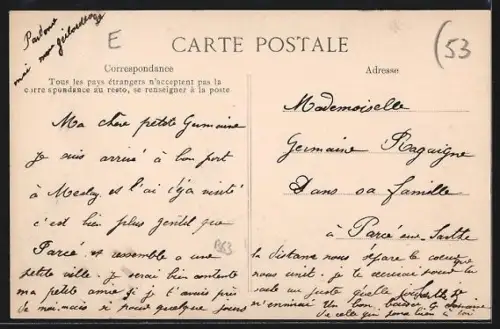 Pardonne
moi mon gribouillage
E
CARTE POSTALE
(53
Correspondance
Tous les pays étrangers n'acceptent pas la
correspondance au recto, se renseigner à la poste
Adresse
Ma chère petite Germaine
je suis arrivé à bon port
à Meslay et l'ai déjà visité
c'est bien plus gentil que
Parcé et ressemble a une
petite ville. je serai bien contente
ma petite amie si je t'avais près
de moi mais pour quelques jours
B53
Mademoiselle
Germaine Ragaigne
Dans sa famille
à Parcé sur Sarthe
la distance nous sépare le coeur
nous unit. je te
au juste quelle
Un bon baiser
de celle qui sera bien à toi